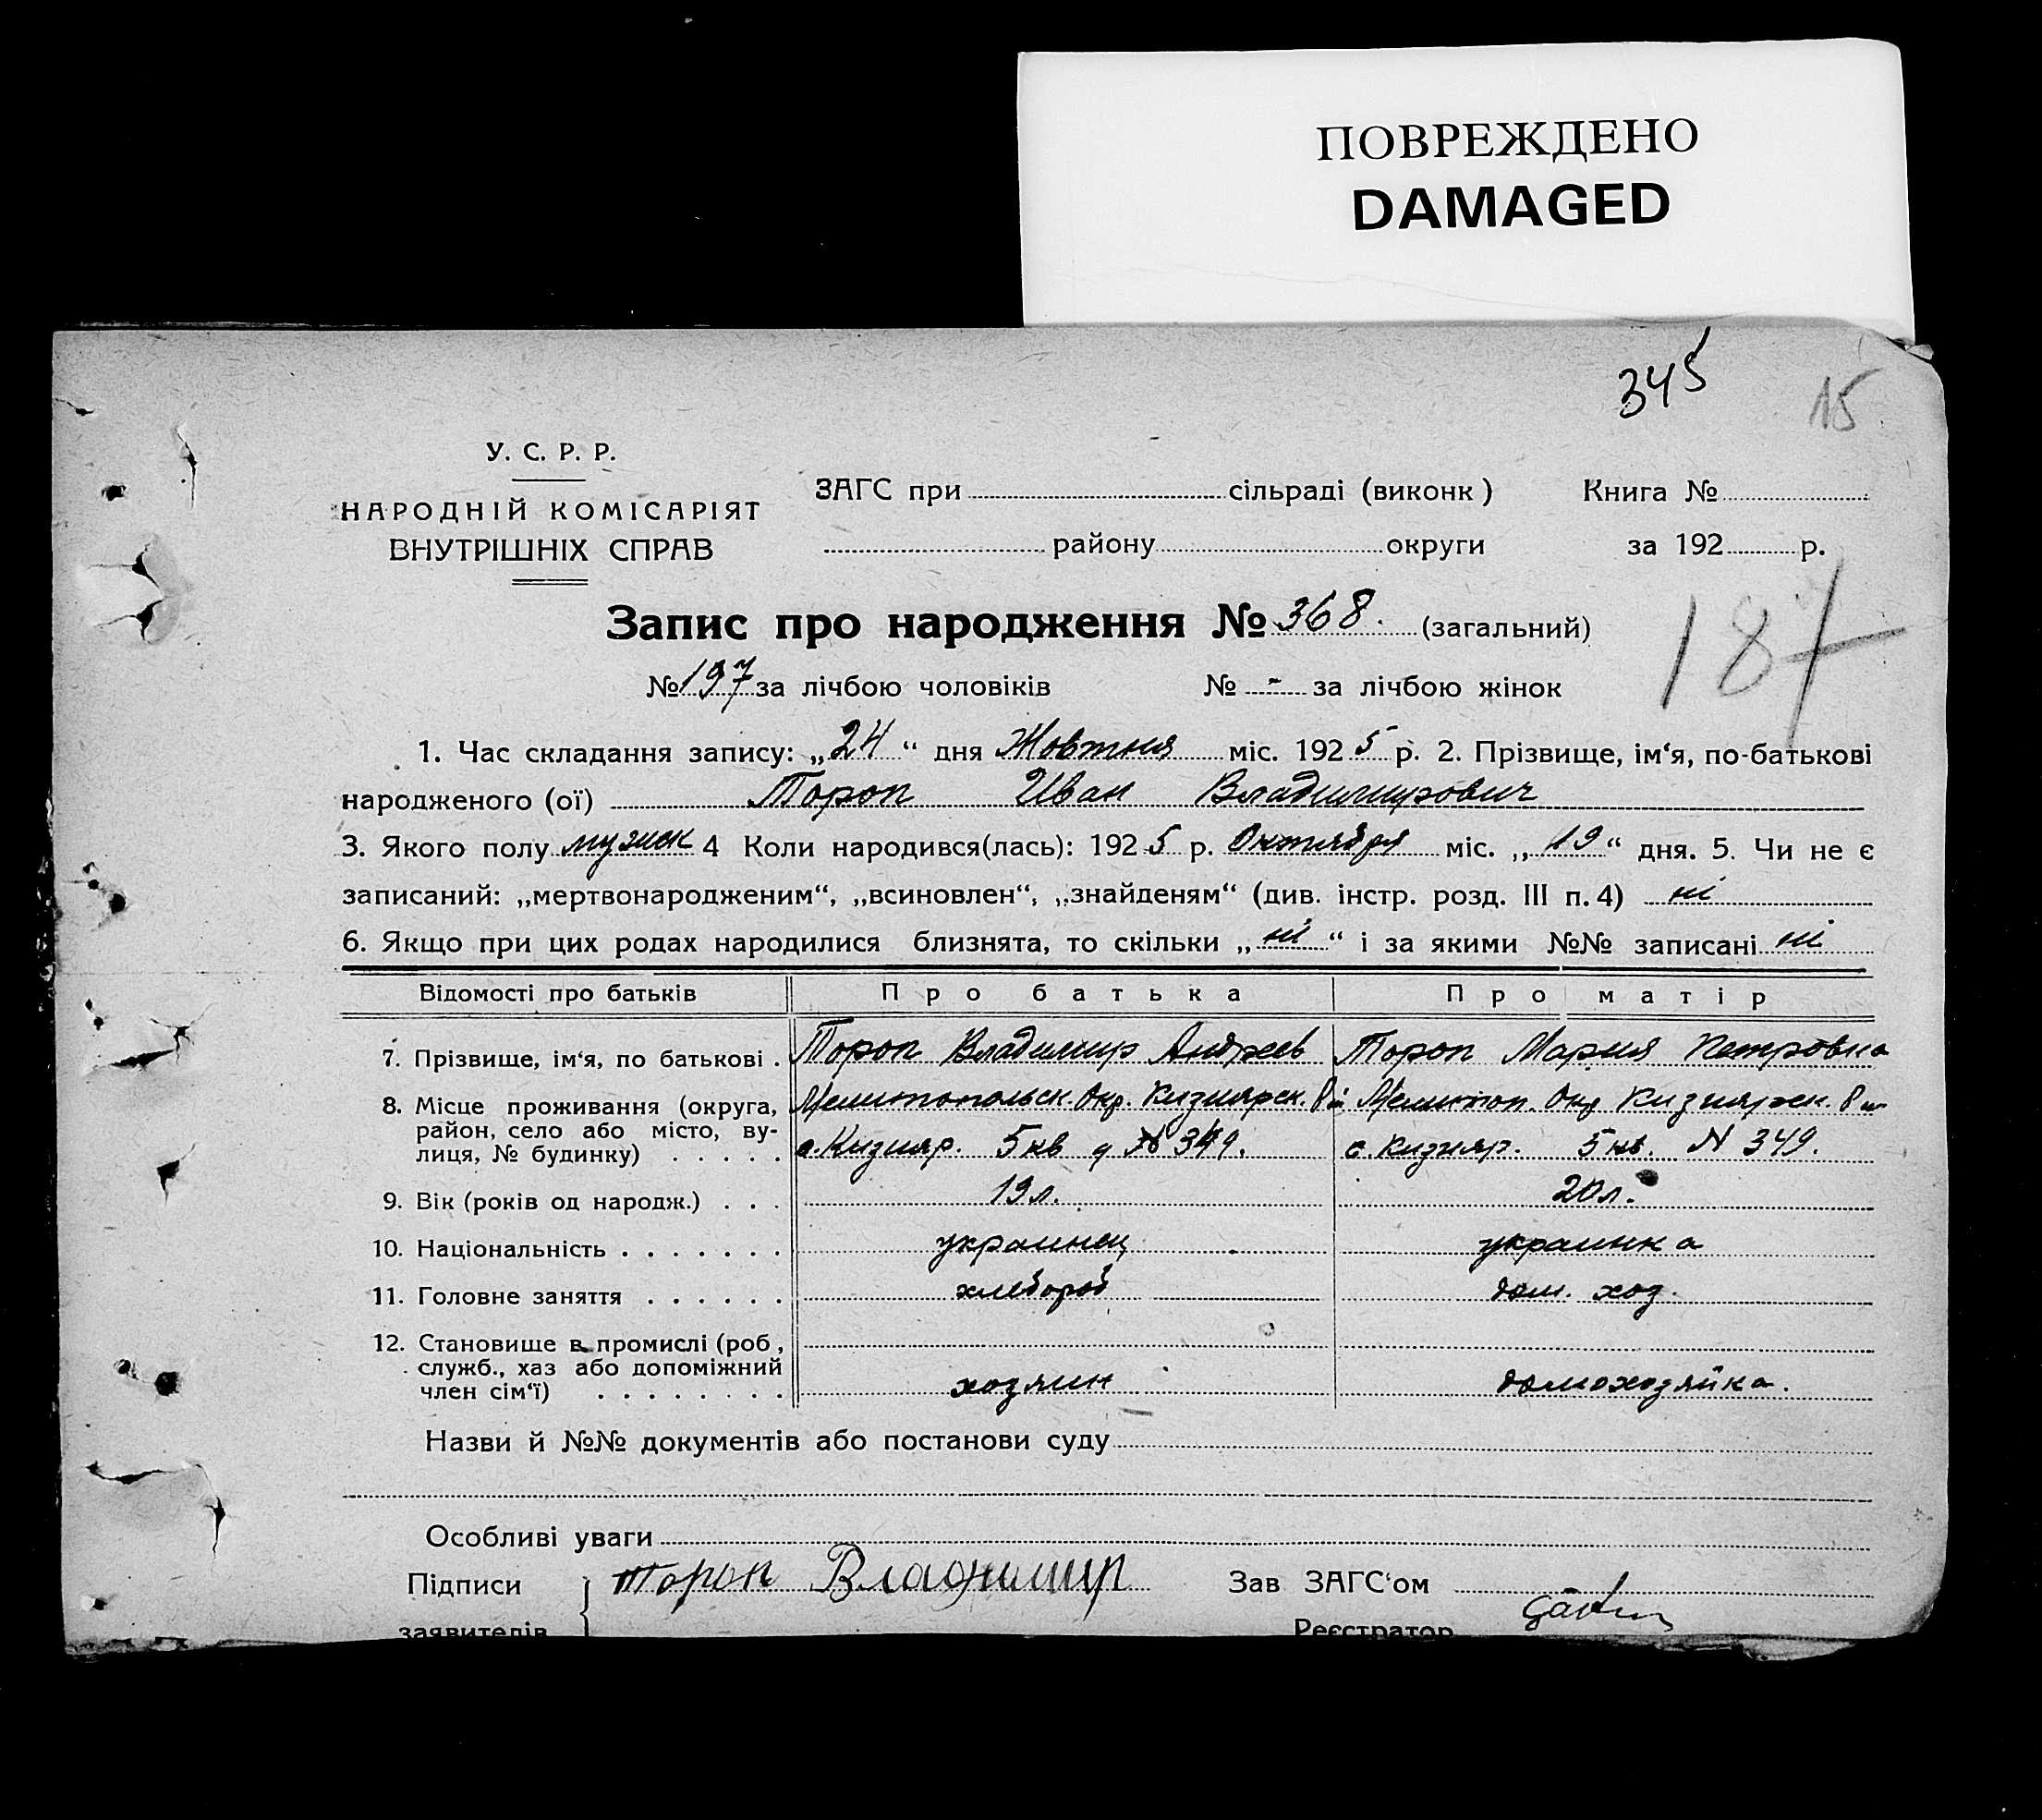 ПОВРЕЖДЕНО
DAMAGED
345
15
У. С. Р. Р.
НАРОДНІЙ КОМІСАРІЯТ
ВНУТРІШНІХ СПРАВ
ЗАГС при сільраді (виконк) Книга №
району округи за 192 р.
Запис про народження № 368. (загальний)
187
№ 197 за лічбою чоловіків № - за лічбою жінок
1. Час складання запису: „24“ дня Жовтня міс. 1925 р. 2. Прізвище, ім‘я, по-батькові
народженого (ої) Тороп Иван Владимирович
3. Якого полу мужск 4 Коли народився(лась): 1925 р. Октября міс. „19“ дня. 5. Чи не є
записаний: „мертвонародженим“, „всиновлен“, „знайденям“ (див. інстр. розд. III п. 4) ні
6. Якщо при цих родах народилися близнята, то скільки „ні“ і за якими №№ записані ні
Відомості про батьків Про батька Про матір
7. Прізвище, ім‘я, по батькові . Тороп Владимир Андреев Тороп Мария Петровна
8. Місце проживання (округа, район, село або місто, вулиця, № будинку) . . . . .
Мелитопольск. Окр. Кизиярск. Мелитоп. Окр Кизиярск.
с. Кизияр. 5 кв д № 349. с. Кизияр. 5 кв. N 349.
9. Вік (років од народж.) . . . 19 л. 20 л.
10. Національність . . . . . . . украинец украинка
11. Головне заняття . . . . . . хлебороб дом. хоз.
12. Становище в промислі (роб, служб., хаз або допоміжний член сім‘ї) . . . . . . . . хозяин домохозяйка.
Назви й №№ документів або постанови суду
Особливі уваги
Підписи Тороп Владимир Зав ЗАГС‘ом
заявителів Реєстратор